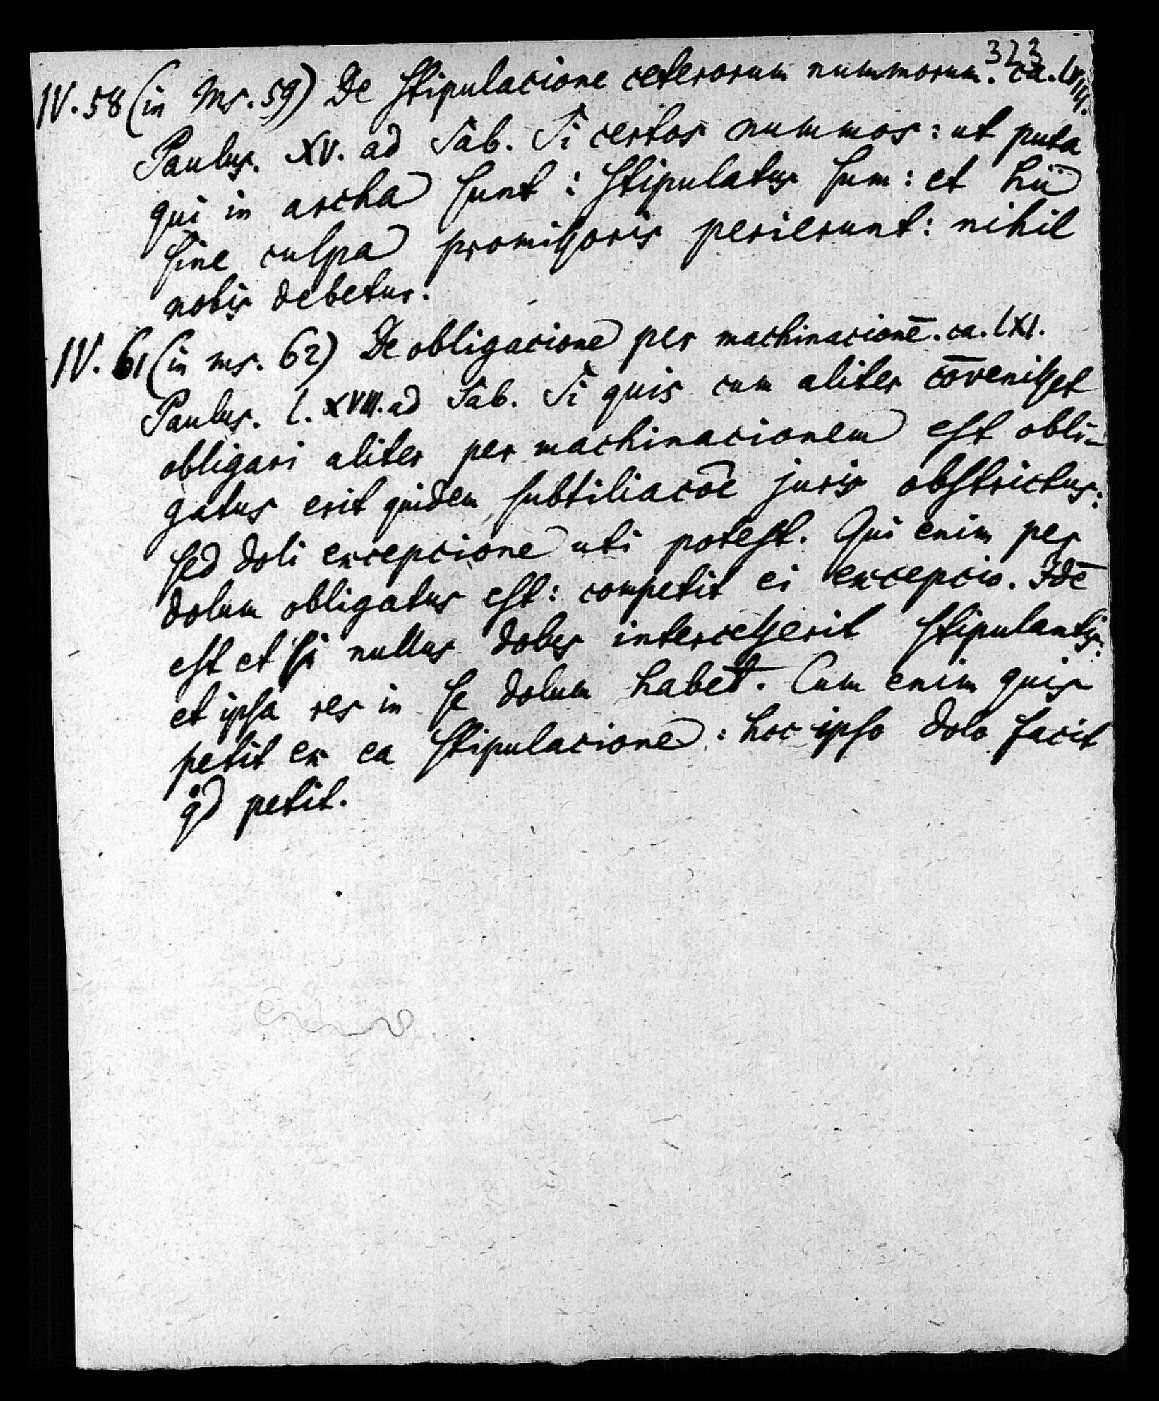 323
IV. 58 (in Ms. 59) De stipulacione ceterorum nummorum. ca. lviii.
Paulus. XV. ad Sab. Si certos nummos: ut puta
qui in archa sunt: stipulatus sum: et hii
sine culpa promissoris perierunt: nihil
nobis debetur.
IV. 61 (in ms. 62) De obligacione per machinacionē. ca. lXI.
Paulus. l. XVIII. ad Sab. Si quis cum aliter cōvenisset
obligari aliter per machinacionem est obli-
gatus erit quidem subtiliacōē juris obstrictus:
sed doli excepcione uti potest. Qui enim per
dolum obligatus est: competit ei excepcio. Idē
est et si nullus dolus intercesserit stipulantis:
et ipsa res in se dolum habet. Cum enim quis
petit ex ea stipulacione: hoc ipso dolo facit
qd petit.